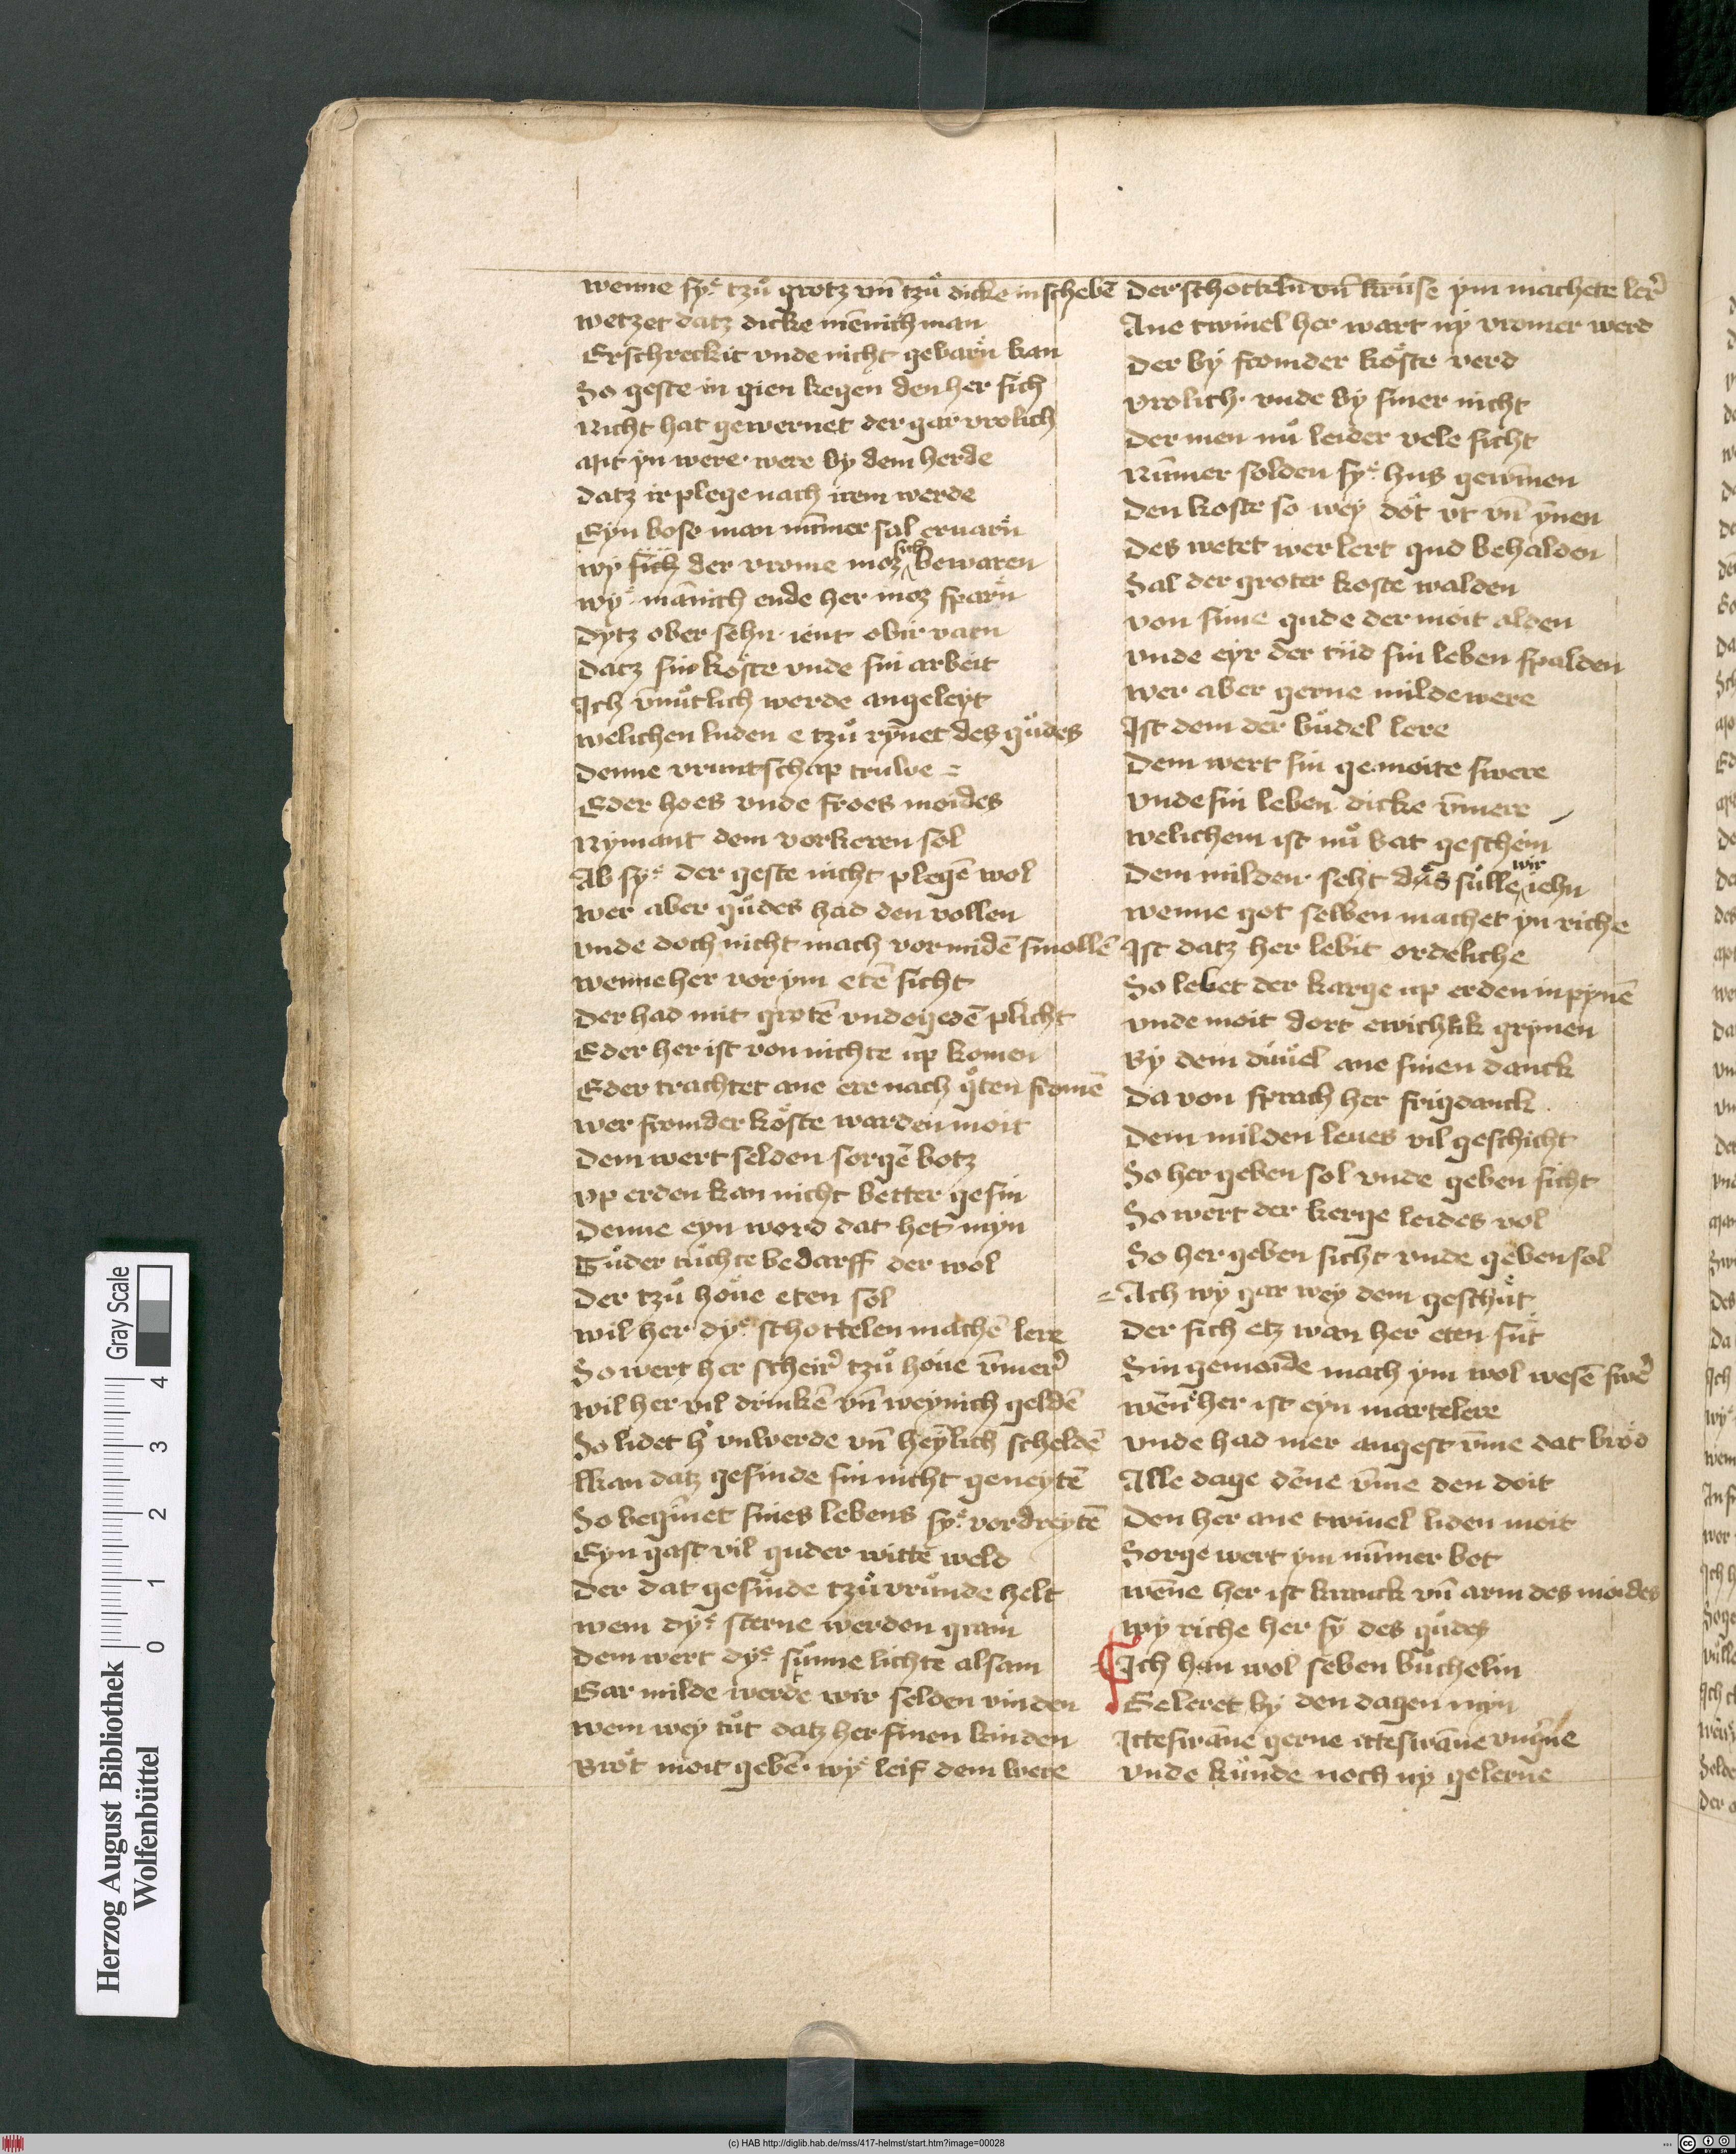 wenne sye tzů grotz vn̄ tzů dicke in schebē
wetzet datz dicke mēnich man
Erschreckit vnde nicht gebarn̄ kan
So geste in gien kegen den her sich
Nicht hat gewernet der gar vrolich
Mit yn were were by dem herde
datz ir plege nach irem werde
Eyn bose man nūmer sal eruarn̄
wy sich der vrome moz sich bewaren
wye mānich ende her moz sparn̄
Dytz ober sehn ient obir varn
datz sin koste vnde sin arbeit
Ich vn̄mutlich werde angeleyt
welichen luden e tzů rȳnet des gůdes
Denne vruntschap truwe
Eder hoes vnde froes moides
Nymant dem vorkeren sol
Ab sye der geste nicht plegē wol
wer aber gůdes had den vollen
vnde doch nicht mach vormidē smollē
wenne her vor ym etē sicht
Der had mit grotē vndogedē plicht
Eder her ist von nichte up komen
Eder trachtet ane ere nach gůten fromē
wer fromder koste warden moit
Dem wert selden sorgē botz
vp erden kan nicht better gesin
Denne eyn word dat het myn
Gůder tůchte bedarff der wol
Der tzů houe eten sol
wil her dye schottelen machē lere
So wert her scheir tzů houe vn̄mer
wil her vil drinkē vn̄ weynich geldē
So lidet h' vnwerde vn̄ heylich scheldē
Kan datz gesinde sin nicht geneytē
So begīnet sines lebens sye vordreytē
Eyn gast vil guder witte weld
Der dat gesinde tzů vrůnde helt
wem dye sterne werden gram
Dem wert dye sůnne lichte alsam
Gar milde werde wir selden vinden
wem wey tůt datz her sinen kinden
Brot moit gebē wye leif dem were
Der schotteln vn̄ kruse ym machete ler
Ane twiuel her wart ny vromer werd
Der by fromder koste verd
vrolich vnde by siner nicht
Der men nů leider vele sicht
Nūmer solden sye hus gewīnen
Den koste so wey dot vt vn̄ ȳnen
Des wetet wer lert gud behalden
Sal der groter koste walden
von sime gude der moit alden
vnde eyr der tiid sin leben spalden
wer aber gerne milde were
Ist dem der bůdel lere
Dem wert sin gemoite swere
vnde sin leben dicke vn̄mere
welichem ist nů bat geschein
Dem milden seht das sůlle wir iehn
wenne got selben machet yn riche
Ist datz her lebit ordeliche
So lebet der karge up erden in pynē
vnde moit dort ewichlik grynen
By dem duuel ane sinen danck
Da von sprach her frigdanck
Dem milden leues vil geschicht
So her geben sol vnde geben sicht
So wert der kerge leides vol
So her geben sicht vnde geben sol
Ach wy gar wey dem geschut
Der sich etz wan her eten sut
Sin gemoide mach ym wol wesē swer
wēn her ist eyn martelere
vnde had mer angest vm̄e dat brod
Alle dage dēne vm̄e den doit
Den her ane twiuel liden moit
Sorge wert ym nūmer bot
wēne her ist kranck vn̄ arm des moides
wy riche her sy des gůdes
Ich han wol seben bůchelin
Geleret by den dagen myn
Itteswāne gerne itteswāne vngerne
vnde kůnde noch ny gelerne
Herzog August Bibliothek
Wolfenbüttel
Gray Scale
0 1 2 3 4
(c) HAB http://diglib.hab.de/mss/417-helmst/start.htm?image=00028